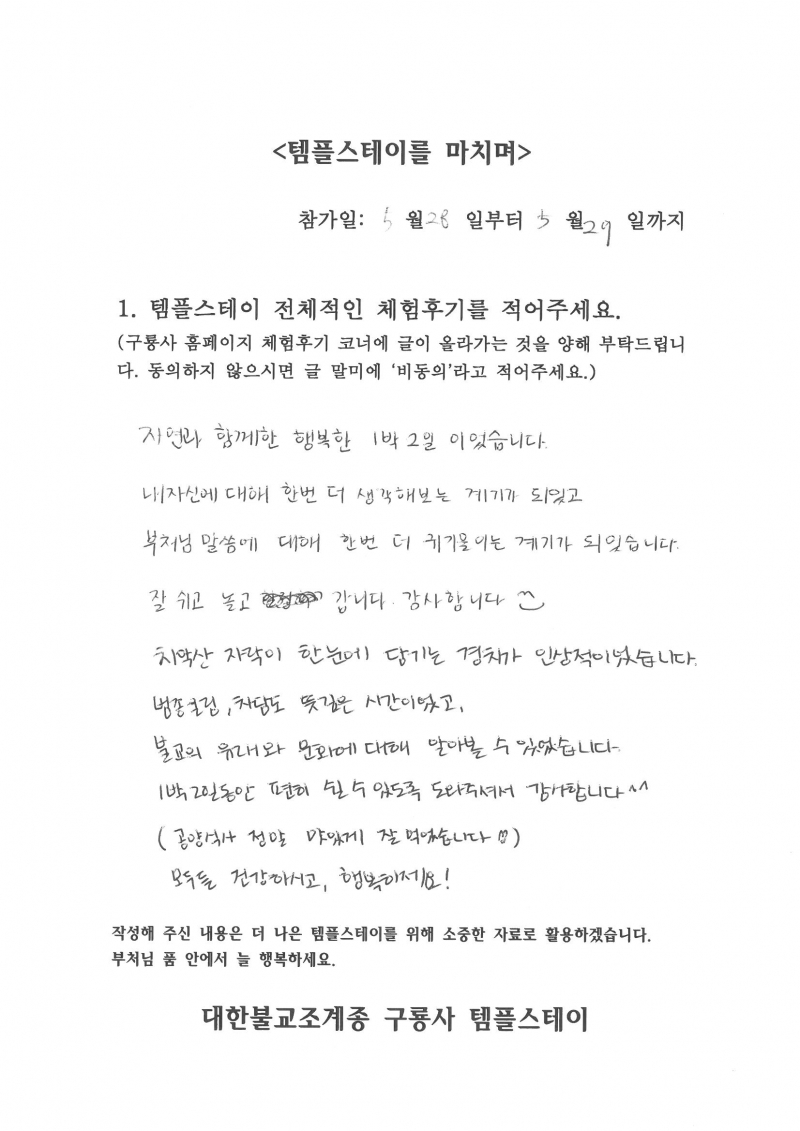 <템플스테이를 마치며>
참가일: 5 월 28 일부터 5 월 29 일까지
1. 템플스테이 전체적인 체험후기를 적어주세요.
(구룡사 홈페이지 체험후기 코너에 글이 올라가는 것을 양해 부탁드립니
다. 동의하지 않으시면 글 말미에 ‘비동의’라고 적어주세요.)
자연과 함께한 행복한 1박 2일 이었습니다.
내자신에 대해 한번 더 생각해보는 계기가 되었고
부처님 말씀에 대해 한번 더 귀기울이는 계기가 되었습니다.
잘 쉬고 놀고 갑니다. 감사합니다
치악산 자락이 한눈에 담기는 경치가 인상적이었습니다.
범종울림, 차담도 뜻깊은 시간이었고,
불교의 유래와 문화에 대해 알아볼 수 있었습니다.
1박2일동안 편히 쉴 수 있도록 도와주셔서 감사합니다^^
(공양식사 정말 맛있게 잘 먹었습니다♡)
모두들 건강하시고, 행복하세요!
작성해 주신 내용은 더 나은 템플스테이를 위해 소중한 자료로 활용하겠습니다.
부처님 품 안에서 늘 행복하세요.
대한불교조계종 구룡사 템플스테이